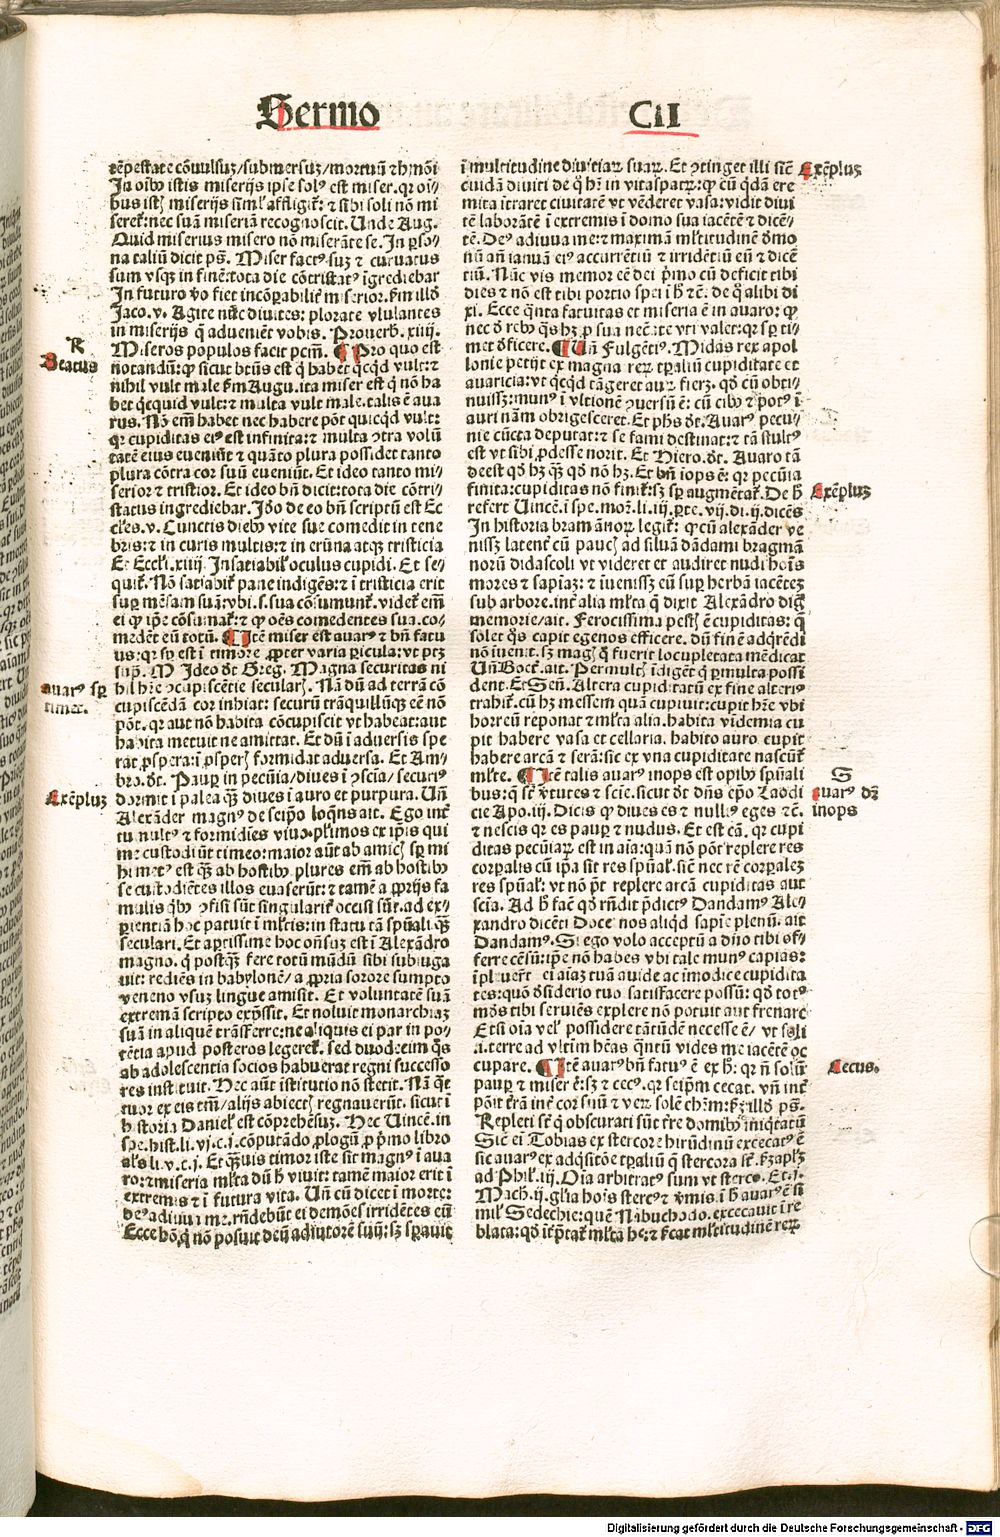 Sermo CII
tēpestate cōuulsuꝫ/submersuꝫ/mortuū ⁊h̄mōi
In oībꝰ istis miserijs ipse solꝰ est miser. qꝛ oī/
bus isth̄ miserijs siml̓ affligit̄: ⁊ sibi soli nō mi
seret̄: nec suā miseriā recognoscit. Unde Aug.
Quid miserius misero nō miserāte se. In ꝑso/
na taliū dicit pꝰ. Miser factꝰ suꝫ ⁊ curuatus
sum vsqꝫ in finē: tota die cōtristatꝰ īgrediebar
In futuro v̄o fiet incōꝑabilit̄ miserior. ẜm illd̄
Jaco. v. Agite nūc diuites: plorate vlulantes
in miserijs q̄ adueniēt vobis. Prouerb. xiiij.
Miseros populos facit pctm̄. ¶ Pro quo est
R
Beatus
notandū: ꝙ sicut btūs est q̇ habet qc̄qd vult: ⁊
nihil vult male ẜm Augu. ita miser est q̇ nō ha
bet qc̄quid vult: ⁊ multa vult male. talis ē aua
rus. Nō em̄ habet nec habere pōt quicqd̄ vult:
qꝛ cupiditas eiꝰ est infinita: ⁊ multa ꝯtra volū
tatē eius eueniūt ⁊ quāto plura possidet tanto
plura cōtra cor suū eueniūt. Et ideo tanto mi/
serior ⁊ tristior. Et ideo bn̄ dicit: tota die cōtri/
status ingrediebar. Jdo de eo bn̄ scriptū est Ec
cles. v. Cunctis diebꝰ vite sue comedit in tene
bris: ⁊ in curis multis: ⁊ in erūna atqꝫ tristicia
Et Eccli. xiiij. Insatiabil̓ oculus cupidi. Et se/
quit̄. Nō satiabit̄ pane indigēs: ⁊ ī tristicia erit
suꝑ mēsam suā: vbi. s. sua cōsumunt̄. videt̄ em̄
ei ꝙ ip̄e cōsumat̄: ⁊ ꝙ oēs comedentes sua. co/
medēt eū totū. ¶ Itē miser est auarꝰ ⁊ bn̄ fatu
us: qꝛ sꝑ est ī timore ꝓpter varia ꝑicula: vt ptꝫ
sup̄. M Ideo dt̄ Greg. Magna securitas ni
auarꝰ sꝑ
timet.
hil hr̄e ꝯcupiscētie secularꝭ. Nā dū ad terrā cō
cupiscēdā cor inhiat: securū trāquillūqꝫ cē nō
pōt. qꝛ aut nō habita cōcupiscit vt habeat: aut
habita metuit ne amittat. Et dū ī aduersis spe
rat ꝓspera: ī ꝓsperꝭ formidat aduersa. Et Am/
bro. dt̄. Pauꝑ in pecūia/diues ī ꝯscīa/ securiꝰ
Exēpluꝫ
dormit ī palea qꝫ̄ diues ī auro et purpura. Un̄
Alexāder magnꝰ de seip̄o loqn̄s ait. Ego int̄
tumultꝰ ⁊ formidīes viuo. plimos ex ip̄is qui
me custodiūt timeo: maior aūt ab amicꝭ sꝑ mi
hi metꝰ est qꝫ̄ ab hostibꝰ. plures em̄ ab hostibꝰ
se custodiētes illos euaserūt: ⁊ tamē a ꝓprijs fa
mulis q̇bꝰ ꝯfisi sūt singularit̄ occisi sūt. ad ex/
ꝑientiā hoc patuit ī ml̓tis: in statu tā spūali qꝫ̄
seculari. Et aꝑtissime hoc on̄suꝫ est ī Alexādro
magno. q̇ postqꝫ̄ fere totū mūdū sibi subiuga
uit: rediēs in babylonē/ a ꝓpria sorore sumpto
veneno vsuꝫ lingue amisit. Et voluntatē suā
extremā scripto exp̄ssit. Et noluit monarchiaꝫ
suā in aliquē trāsferre: ne aliquis ei par in po/
tētia apud posteros legeret̄. sed duodecim q̄s
ab adolescentia socios habuerat regni successo
res instituit. Hec aūt institutio nō stetit. Nā q̄t
tuor ex eis tm̄/alijs abiectꝭ regnauerūt. sicut ī
hystoria Daniel̓ est cōprehēsuꝫ. Hec Uincē. in
spe. hist. li. vj. c. j. cōputādo ꝓlogū ꝓ p̄mo libro
al̓s li. v. c. j. Et qꝫ̄uis timor iste sit magnꝰ ī aua
ro: ⁊ miseria ml̓ta dū h̄ viuit: tamē maior erit ī
extremis ⁊ ī futura vita. Un̄ cū dicet ī morte:
deꝰ adiuua me. rn̄debūt ei demōes irridētes eū
Ecce hō. q̇ nō posuit deū adiutorē suū: sꝫ sꝑauit
ī multitudine diuitiaꝝ suaꝝ. Et ꝯtinget illi sic̄
Exēpluꝫ
cuidā diuiti de q̊ hr̄ in vitaspatꝝ: ꝙ cū q̇dā ere
mita itraret ciuitatē vt vēderet vasa: vidit diui
tē laborātē ī extremis ī domo sua iacētē ⁊ dicē/
tē. Deꝰ adiuua me: ⁊ maximā ml̓titudinē dēmo
nū an̄ ianuā eiꝰ accurrētiū ⁊ irridētiū eū ⁊ dicē
tiū. Nūc vis memor eē dei p̄mo cū deficit tibi
dies ⁊ nō est tibi portio spei ī h̄ ⁊c̄. de q̊ alibi di
xi. Ecce q̇nta fatuitas et miseria ē in auaro: ꝙ
nec d̄ rebꝰ q̄s hꝫ ꝓ sua nec̄itate vti valet: qꝛ sꝑ ti/
met d̄ficere. ¶ Un̄ Fulgētiꝰ. Midas rex apol
lonie petijt ex magna reꝝ tꝑaliū cupiditate et
auaricia: vt qc̄qd tāgeret auꝝ fieret. qd̄ cū obti/
nuissꝫ: munꝰ ī vltionē ꝯuersū ē: cū cibꝰ ⁊ potꝰ ī
auri nām obrigesceret. Et phs̄ dt̄. Auarꝰ pecu/
nie cūcta deputat: ⁊ se fami destinat: ⁊ tā stultꝰ
est vt sibi ꝓdesse norit. Et Hiero. dt̄. Auaro tā
deest qd̄ hꝫ qꝫ̄ qd̄ nō hꝫ. Et bn̄ iops ē: qꝛ pecūia
finita: cupiditas nō finit̄: sꝫ sꝑ augmētat̄. De h̄
Exēpluꝫ
refert Uincē. ī spe. mor. li. iij. ꝑte. vij. di. ij. dicēs
In historia bramānoꝝ legit̄: ꝙ cū alexāder ve
nissꝫ latent̄ cū paucꝭ ad siluā dādami bragmā
norū didascoli vt videret et audiret nudi hoīs
mores ⁊ sapiaꝫ: ⁊ īuenissꝫ eū suꝑ herbā iacētez
sub arbore. int̄ alia ml̓ta q̄ dixit Alexādro dig̃
memorie/ait. Ferocissima pestꝭ ē cupiditas: q̄
solet q̄s capit egenos efficere. dū finē adq̇rēdi
nō īuenit. sꝫ magꝭ q̄ fuerit locupletata mēdicat
Un̄ Boet̄. ait. Permultꝭ īdiget q̇ ꝑmulta possi
dent. Et Sen̄. Altera cupiditatū ex fine alteriꝰ
trahit̄. cū hꝫ messem quā cupiuit: cupit hr̄e vbi
horreū reponat ⁊ ml̓ta alia. habita vīdemia cu
pit habere vasa et cellaria. habito auro cupit
habere arcā ⁊ serā: sic ex vna cupiditate nascūt̄
ml̓te. ¶ Itē talis auarꝰ inops est opibꝰ spūali
S
auarꝰ dꝫ
inops
bus: q̄ st̄ v̄tutes ⁊ scīe. sicut dt̄ dn̄s ep̄o Laodi
cie Apo. iij. Dicis ꝙ diues es ⁊ nulliꝰ eges ⁊c̄.
⁊ nescis qꝛ es pauꝑ ⁊ nudus. Et est cā. qꝛ cupi
ditas pecūiaꝝ est in aīa: quā nō pōt replere res
corꝑalis cū ip̄a sit res spūal̓. sic̄ nec rē corꝑaleꝫ
res spūal̓: vt nō p̄t replere arcā cupiditas aut
scīa. Ad h̄ fac̄ qd̄ rn̄dit p̄dictꝰ Dandamꝰ Ale/
xandro dicēti Doce nos aliqd̄ sapīe plenū. ait
Dandamꝰ. Si ego volo acceptū a dn̄o tibi of/
ferre cēsū: ip̄e nō habes vbi tale munꝰ capias:
īpleuer̄t ei aiaꝫ tuā auide ac īmodice cupidita
tes: quō d̄siderio tuo satisfacere possū: qd̄ totꝰ
mōs tibi seruiēs explere nō potuit aut frenare
Etsi oīa vel̓ possidere tātūdē necesse ē/ vt soli
ī. terre ad vltim hēas q̇ntū vides me iacētē oc
cupare. ¶ Itē auarꝰ bn̄ fatuꝰ ē ex h̄: qꝛ n̄ solū
Cecus.
pauꝑ ⁊ miser ē: sꝫ ⁊ cecꝰ. qꝛ seip̄m cecat. vn̄ int̄
pōit tr̄ā int̄ cor suū ⁊ veꝝ solē chr̄m: ẜꝫ illd̄ pꝰ.
Repleti st̄ q̇ obscurati sūt tr̄e domibꝰ iniq̇tatū
Sic̄ ei Tobias ex stercore hirūdinū excecatꝰ ē
sic auarꝰ ex adq̇sitōe tꝑaliū q̄ stercora st̄. ẜꝫ apl̓ꝫ
ad Phil̓. iij. Oīa arbitratꝰ sum vt stercꝰ. Et. j.
Mach. ij. gl̓ia hoīs stercꝰ ⁊ v̄mis. ī h̄ auarꝰ ē si
mil̓ Sedechie: quē Nabuchodo. excecauit ī re
blata: qd̄ īt̄p̄tat̄ ml̓ta he: ⁊ ẜcat ml̓titudinē reꝝ